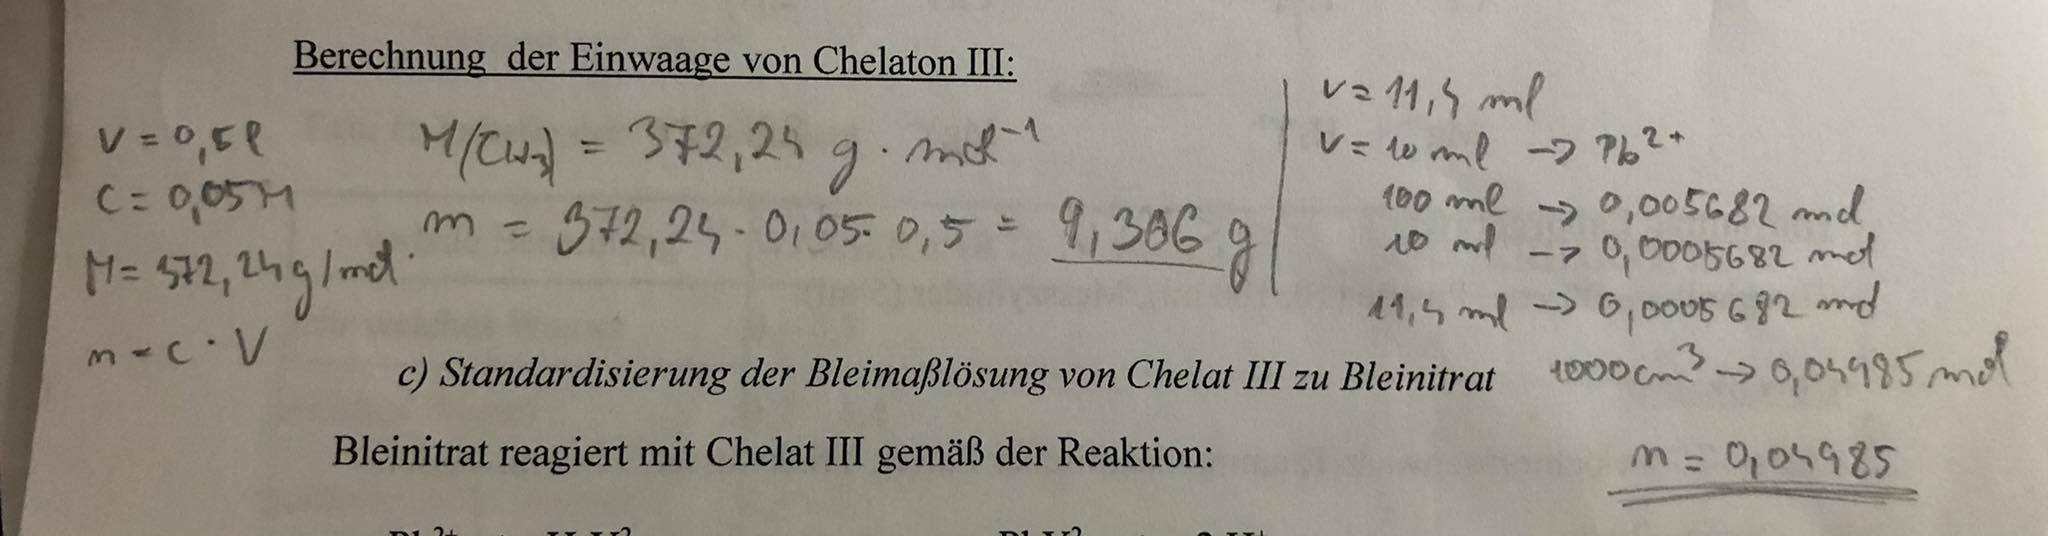 Berechnung der Einwaage von Chelaton III:
V = 0,5l
C = 0,05M
M = 372,24g/mol
n = c · V
M(CH3) = 372,24 g · mol-1
m = 372,24 · 0,05 · 0,5 = 9,306 g
V = 11,4 ml
V = 10 ml -> Pb2+
100 ml -> 0,005682 mol
10 ml -> 0,0005682 mol
11,4 ml -> 0,0005682 mol
1000cm3 -> 0,04985 mol
n = 0,04985
c) Standardisierung der Bleimaßlösung von Chelat III zu Bleinitrat
Bleinitrat reagiert mit Chelat III gemäß der Reaktion: